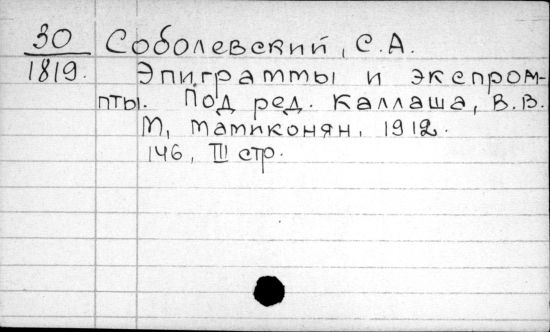 30 Соболевский, С.А.
1819. Эпиграммы и экспром-
пты. Под ред. Каллаша, В.В.
М, Мамиконян, 1912.
146, III стр.